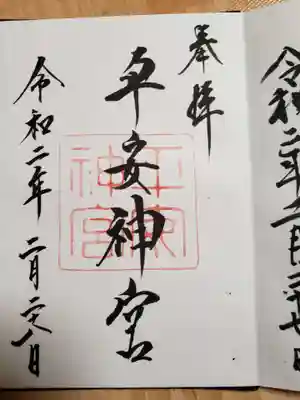 令和二年二月二十七日
奉拝
平安神宮
平安
神宮
令和二年 二月二十八日